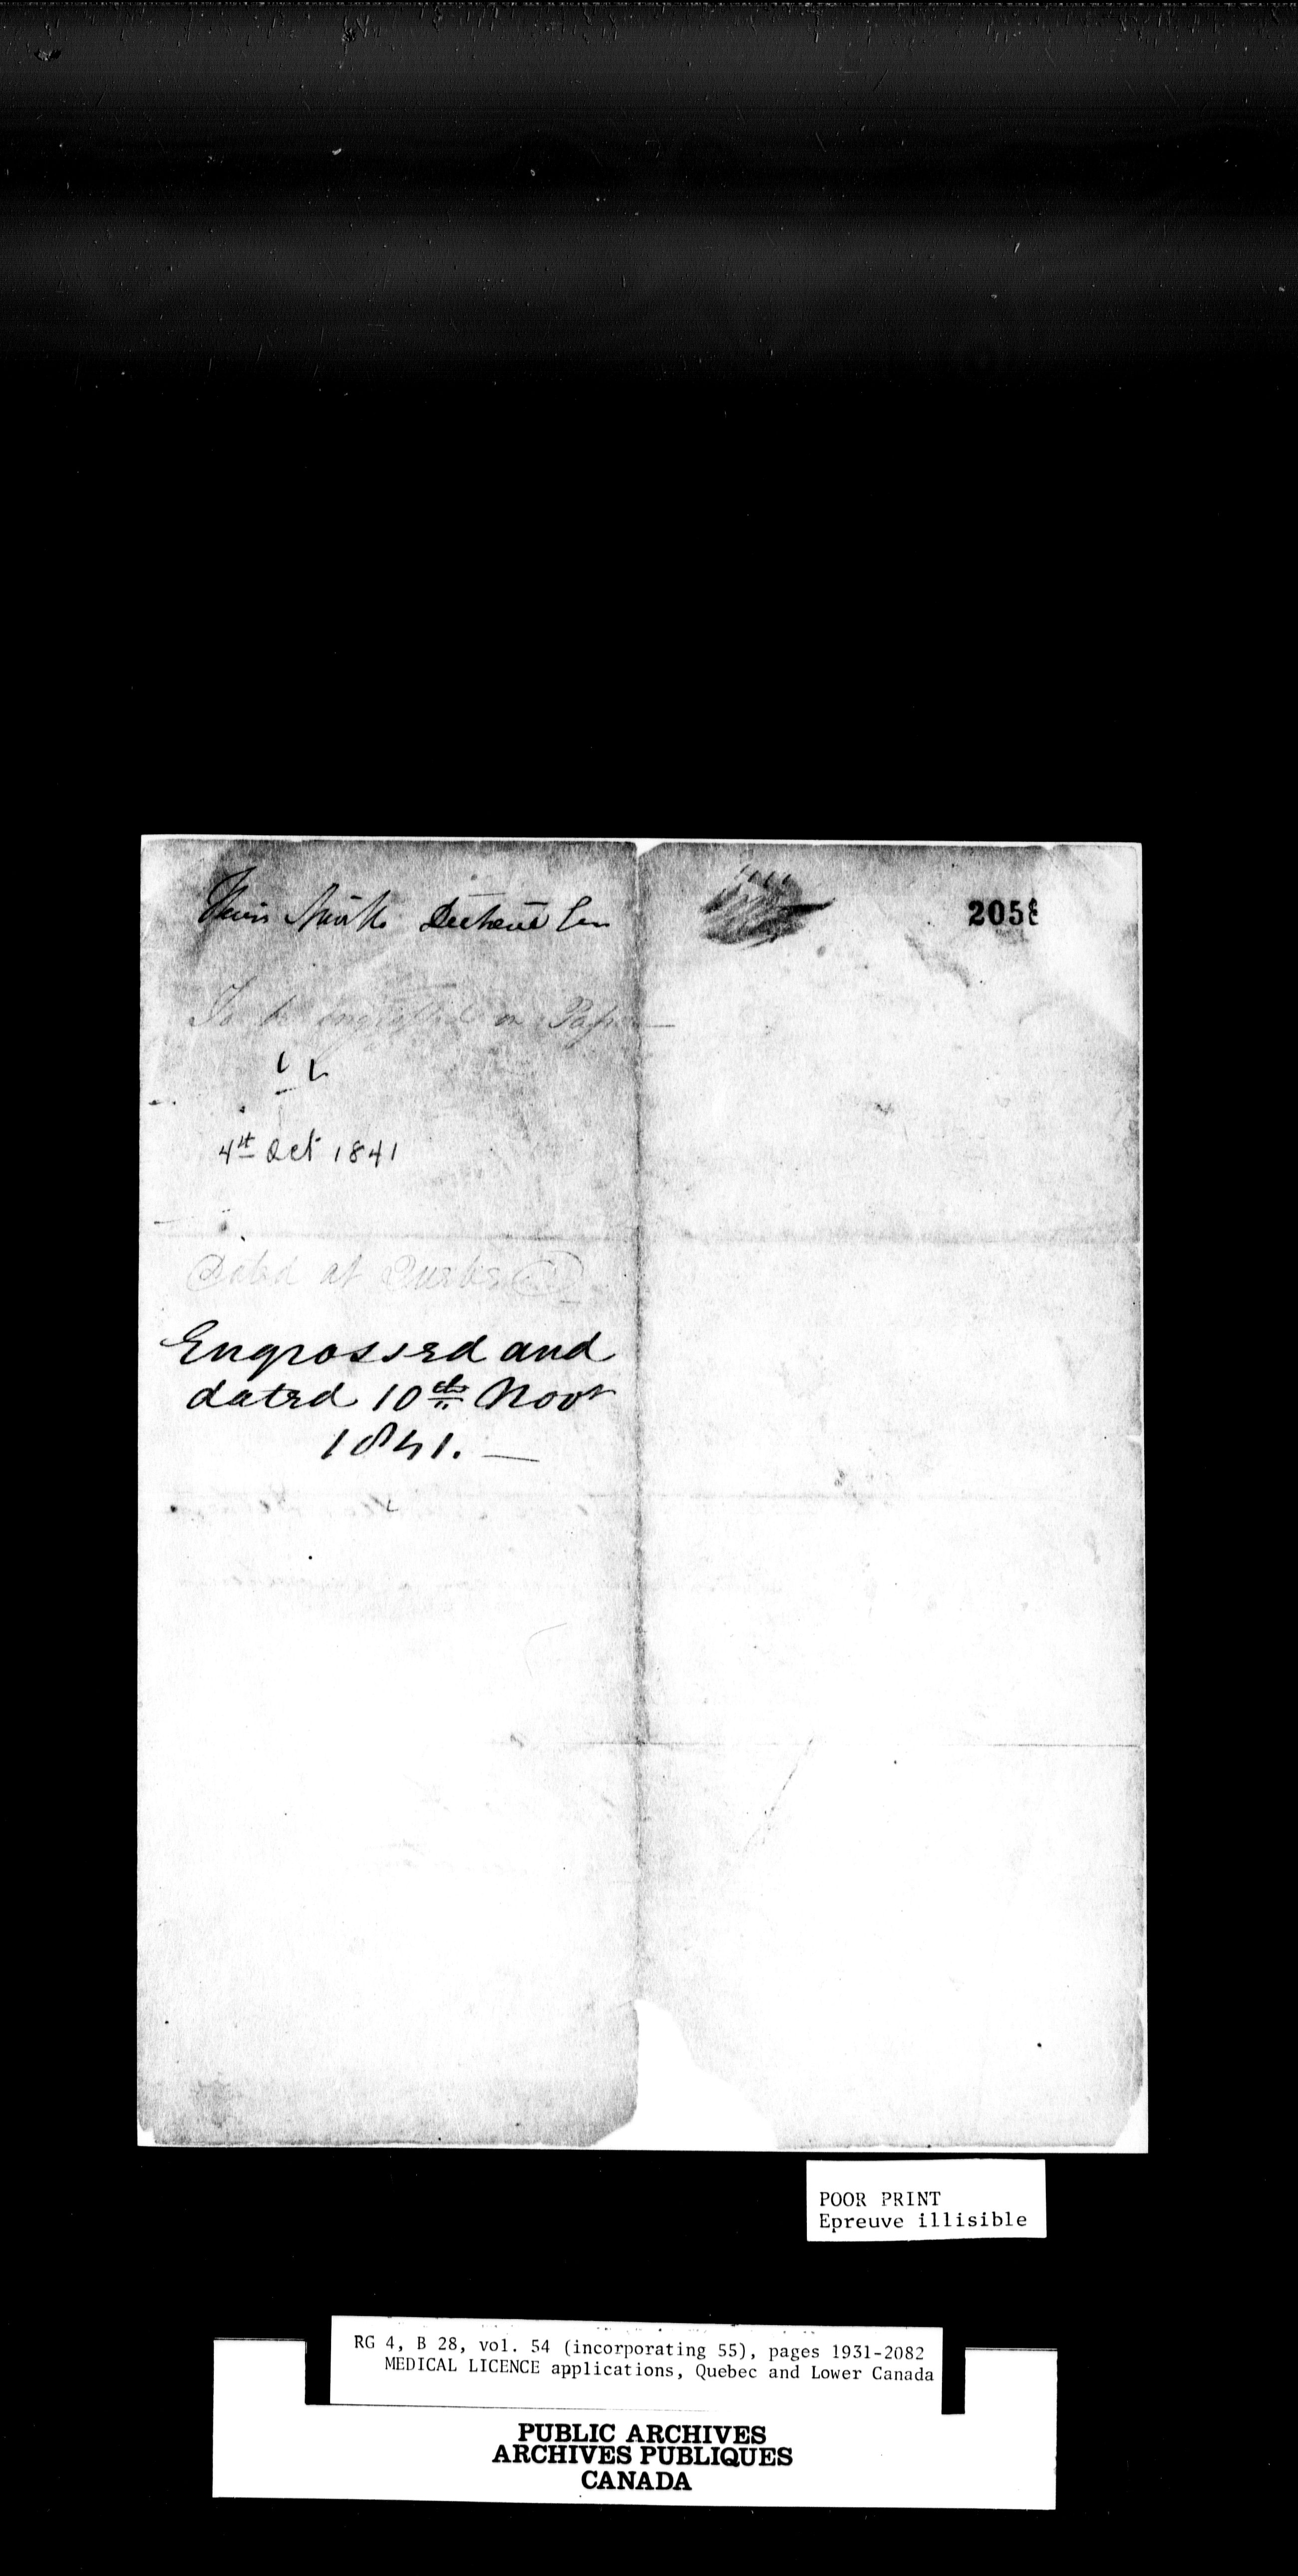 2058
To be engrossed on Paper
4th Oct 1841
Dated at Quebec
Engrossed and
dated 10th Novr
1841. —
POOR PRINT
Epreuve illisible
RG 4, B 28, vol. 54 (incorporating 55), pages 1931-2082
MEDICAL LICENCE applications, Quebec and Lower Canada
PUBLIC ARCHIVES
ARCHIVES PUBLIQUES
CANADA